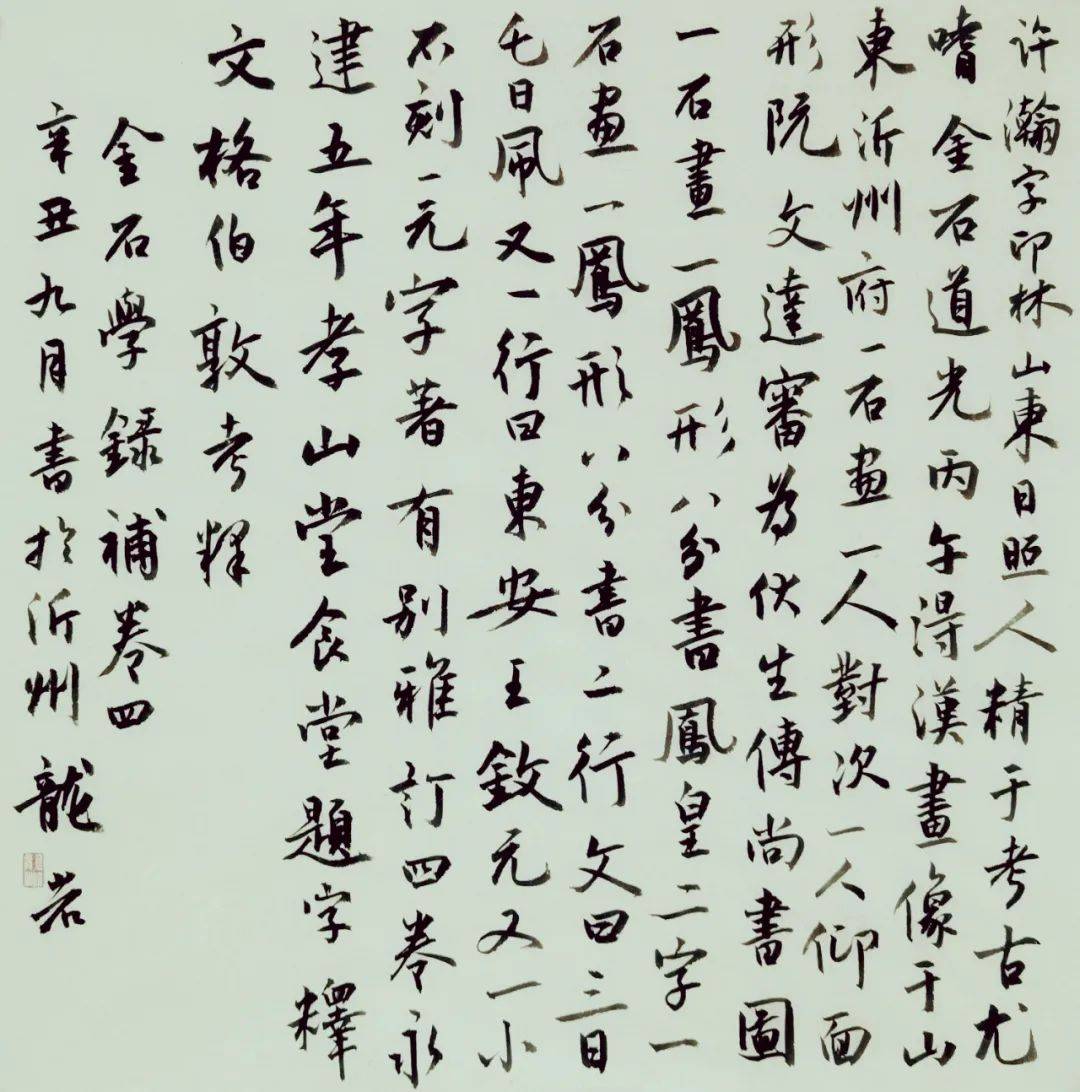 许瀚字印林山東日照人精于考古尤
嗜金石道光丙午得漢畫像于山
東沂州府一石画一人對次一人仰面
形阮文達審為伏生傳尚書圖
一石畫一鳳形八分書鳳皇二字一
石画一鳳形八分書二行文曰三日
七日又一行曰東安王欽元又一小
石刻一元字著有别雅訂四卷永
建五年孝山堂食堂題字釋
文格伯敦考釋
金石學録補卷四
辛丑九月書於沂州龍岩